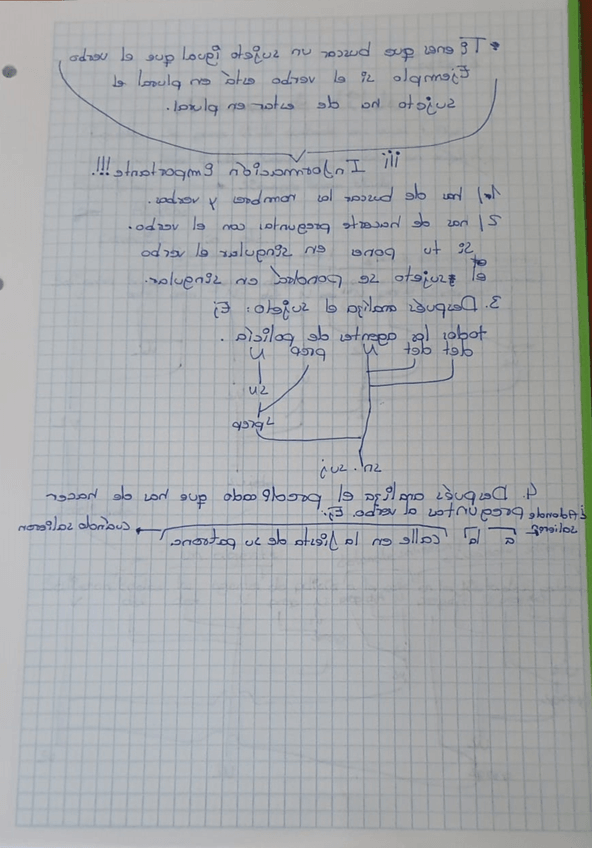 • Tienes que buscar un sujeto igual que el verbo
Ejemplo si el verbo está en plural el
sujeto ha de estar en plural.
¡¡¡ Información Importante!!!
1) has de buscar los nombres y verbos.
2) has de hacerte preguntas con el verbo.
si tu pones en singular el verbo
el sujeto se pondrá en singular.
3. Después analiza el sujeto: Ej
todos los agentes de policía.
det det N prep N
SN
Sprep
SN. suj
4. Después analiza el predicado que has de hacer
preguntas al verbo. Ej.
¿Adonde salieron?
a la calle en la fiesta de su patrona. → cuándo salieron